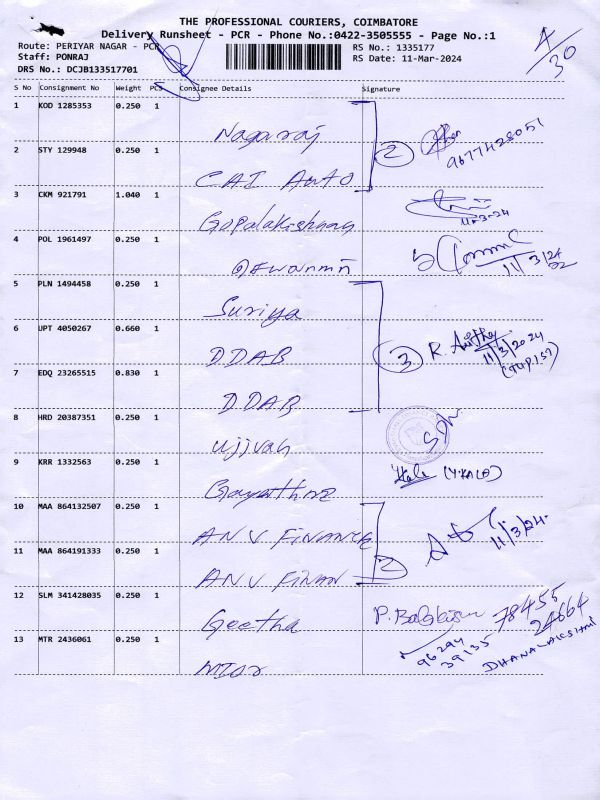 THE PROFESSIONAL COURIERS, COIMBATORE
Delivery Runsheet - PCR - Phone No.:0422-3505555 - Page No.:1
Route: PERIYAR NAGAR - PCR
RS No.: 1335177
Staff: PONRAJ
RS Date: 11-Mar-2024
DRS No.: DCJB133517701
4/30
S No Consignment No Weight PCS Consignee Details Signature
1 KOD 1285353 0.250 1
Nagaraj
2 9677428051
2 STY 129948 0.250 1
CAI Auto
3 CKM 921791 1.040 1
Gopalakishnan
11-3-24
4 POL 1961497 0.250 1
11/3/24
5 PLN 1494458 0.250 1
Suriya
6 UPT 4050267 0.660 1
DDAB
3 R. 11/3/2024
7 EDQ 23265515 0.830 1
DDAB
8 HRD 20387351 0.250 1
Ujjivan
9 KRR 1332563 0.250 1
(Y.KALA)
10 MAA 864132507 0.250 1
ANV FINANCE
11/3/24
11 MAA 864191333 0.250 1
ANV FINAN
2
12 SLM 341428035 0.250 1
Geetha
P. 78455
24664
13 MTR 2436061 0.250 1
96294
39135
DHANALAKSHMI